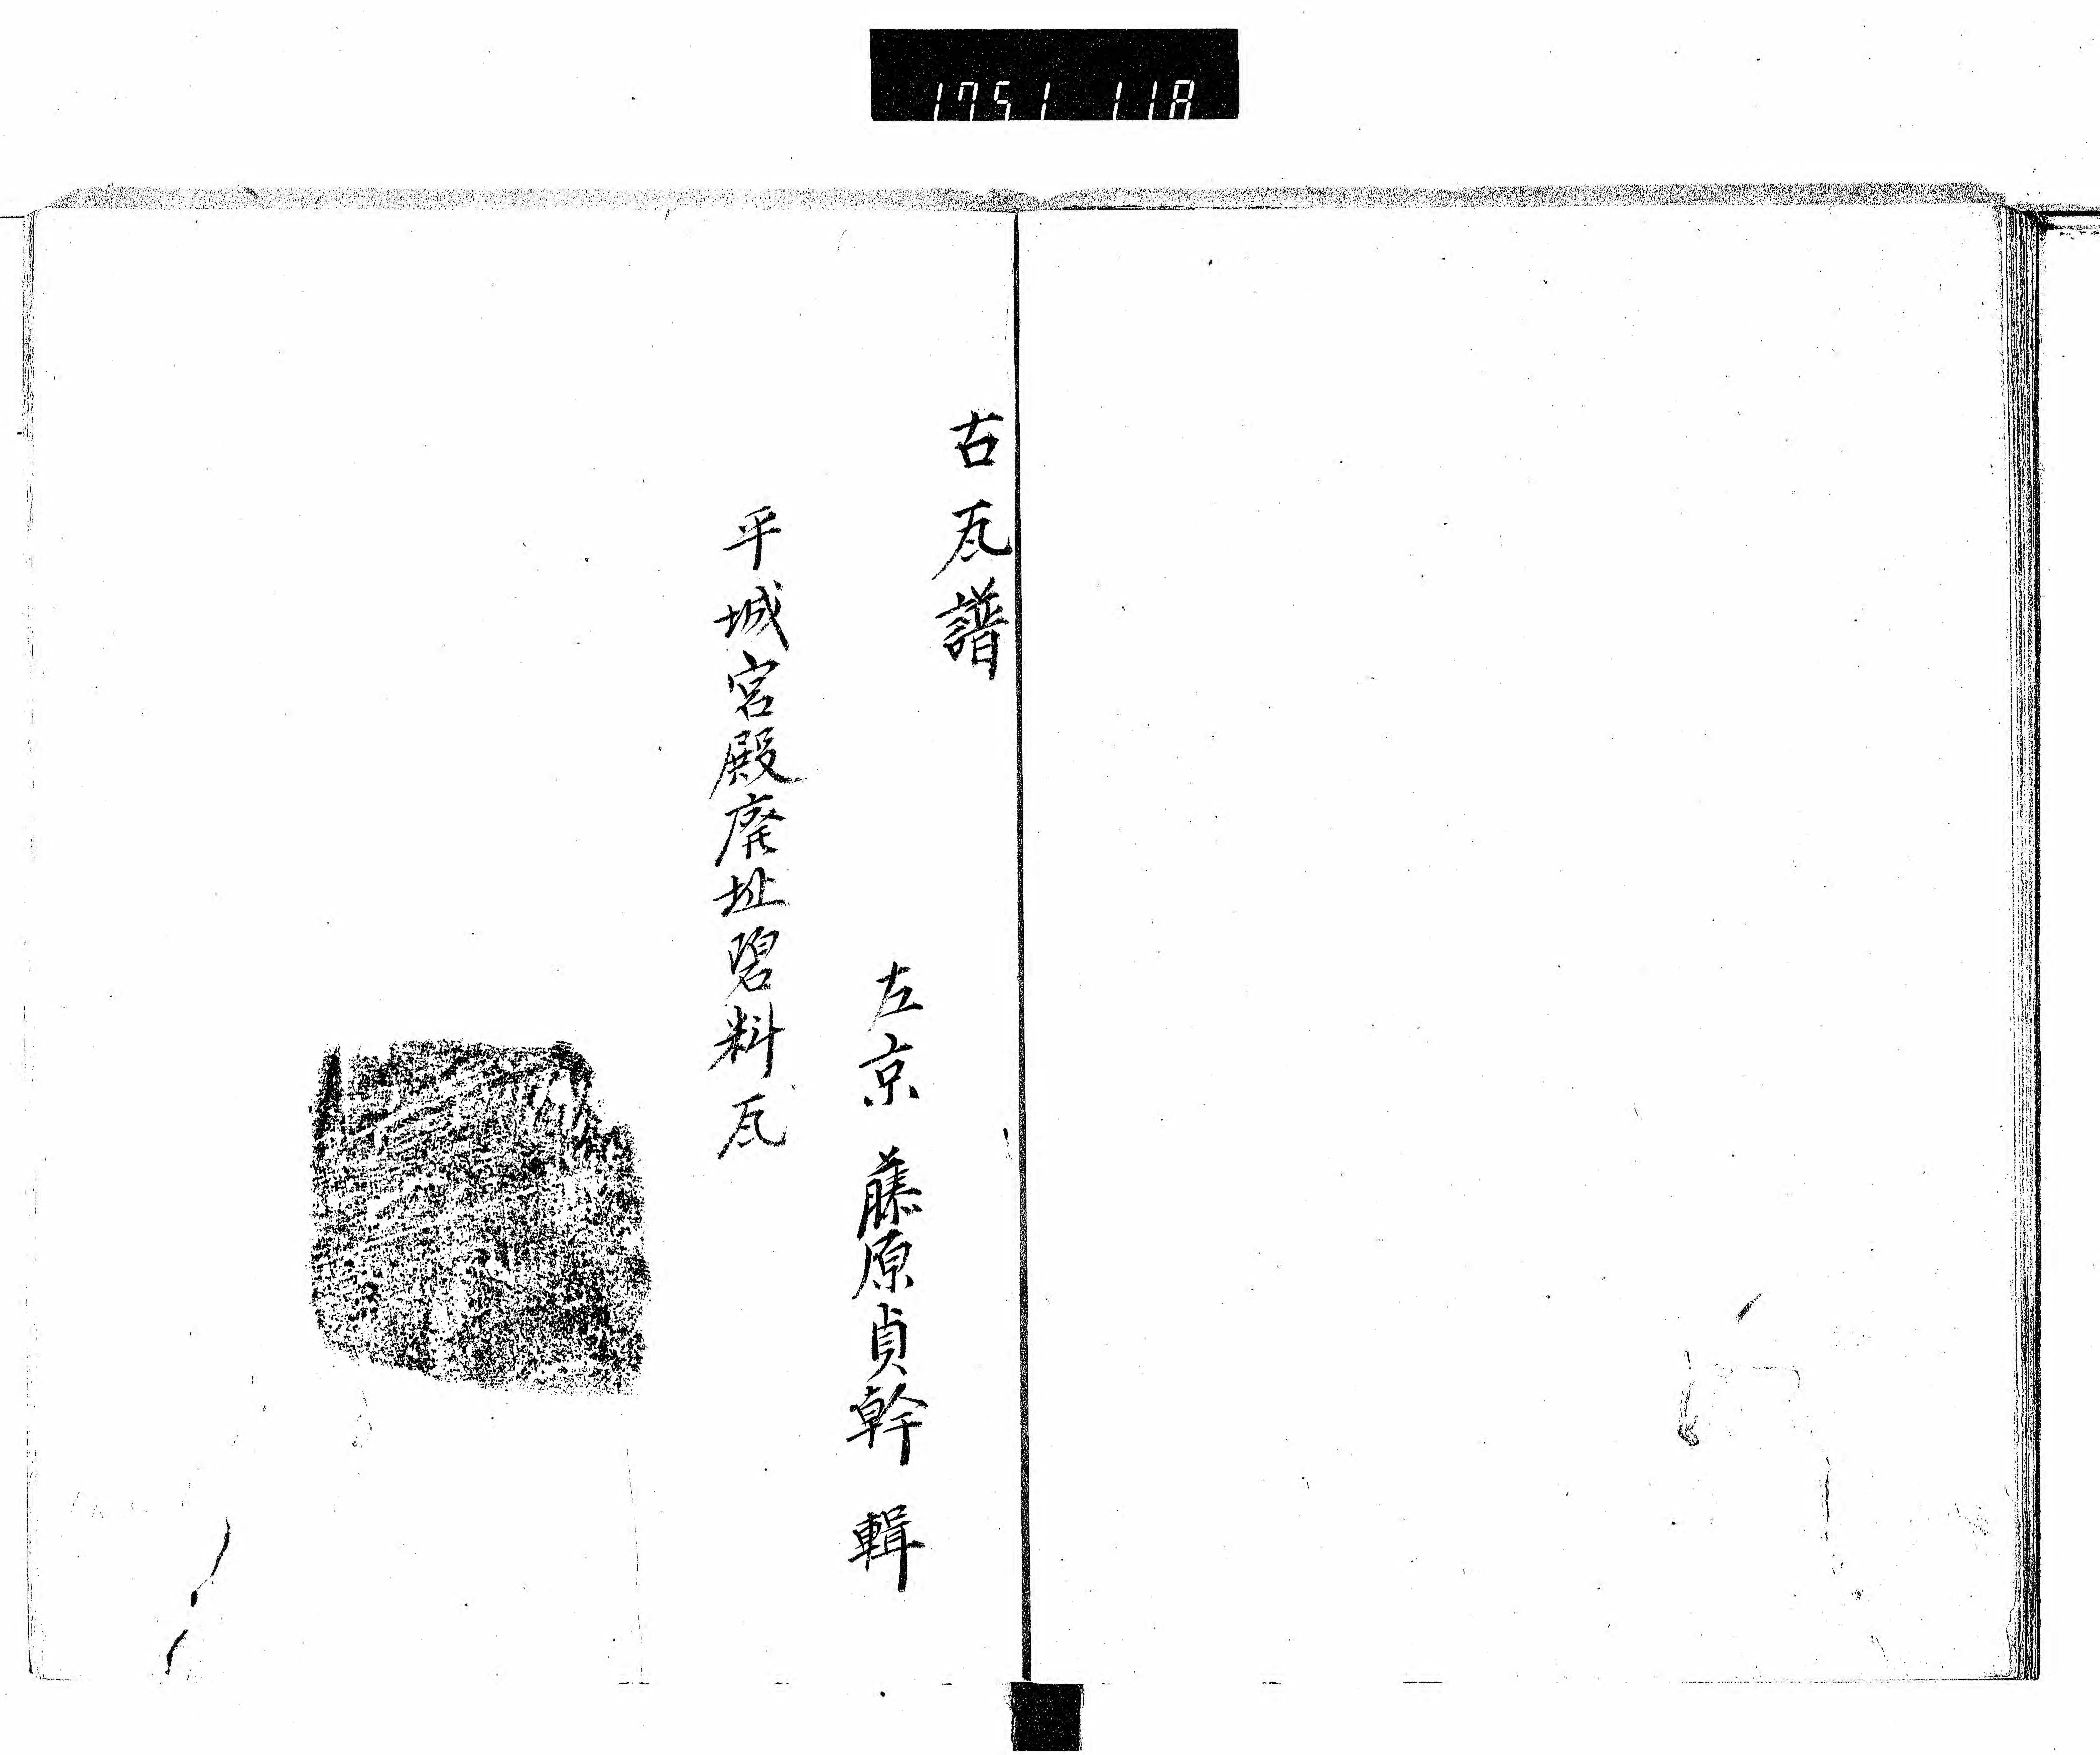 1751 118
古瓦譜
左京 藤原貞幹 輯
平城宮殿廃址碧料瓦